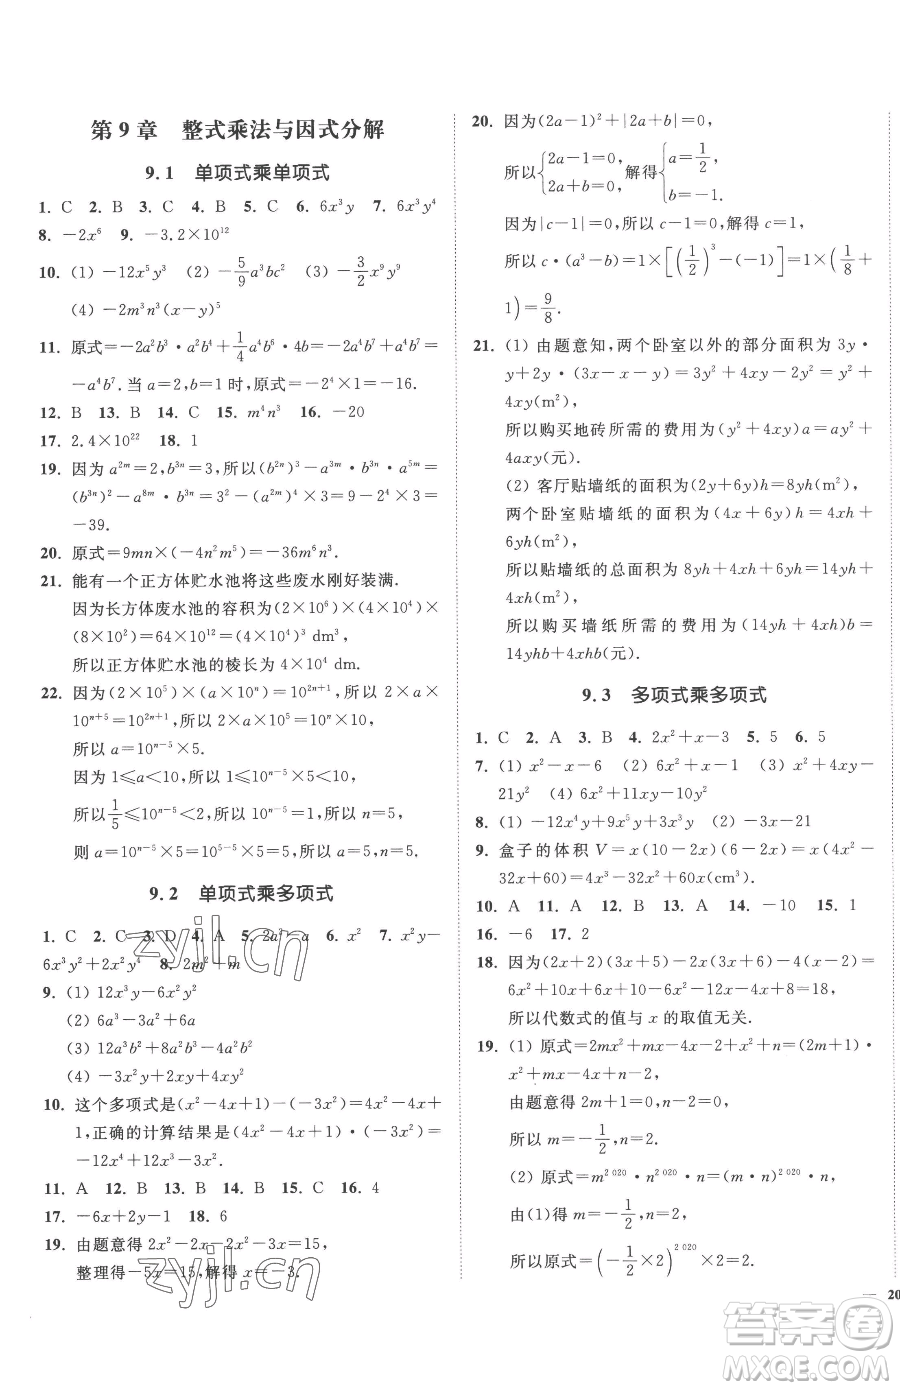 第 9 章　整式乘法与因式分解
9. 1　单项式乘单项式
1. C　2. B　3. C　4. B　5. C　6. 6x³y　7. 6x³y⁴
8. −2x⁶　9. −3.2×10¹²
10. (1) −12x⁵y³　(2) −5/9 a³bc²　(3) −3/2 x⁹y⁹
(4) −2m³n³(x−y)⁵
11. 原式=−2a²b³·a²b⁴+1/4 a⁴b⁶·4b=−2a⁴b⁷+a⁴b⁷=
−a⁴b⁷. 当 a=2,b=1 时,原式=−2⁴×1=−16.
12. B　13. B　14. C　15. m⁴n³　16. −20
17. 2.4×10²²　18. 1
19. 因为 a²ᵐ=2,b³ⁿ=3,所以(b²ⁿ)³−a³ᵐ·b³ⁿ·a⁵ᵐ=
(b³ⁿ)²−a⁸ᵐ·b³ⁿ=9−(a²ᵐ)⁴×3=9−2⁴×3=
−39.
20. 原式=9mn×(−4n²m⁵)=−36m⁶n³.
21. 能有一个正方体贮水池将这些废水刚好装满.
因为长方体废水池的容积为(2×10⁶)×(4×10⁴)×
(8×10²)=64×10¹²=(4×10⁴)³ dm³,
所以正方体贮水池的棱长为 4×10⁴ dm.
22. 因为(2×10⁵)×(a×10ⁿ)=10²ⁿ⁺¹,2×a×
10ⁿ⁺⁵=10²ⁿ⁺¹,所以 2×a×10⁵=10ⁿ⁺¹,
所以 a=10ⁿ⁻⁵×5.
因为 1⩽a<10,所以 1⩽10ⁿ⁻⁵×5<10,
所以1/5⩽10ⁿ⁻⁵<2,所以 10ⁿ⁻⁵=1,所以 n=5,
则 a=10ⁿ⁻⁵×5=10⁵⁻⁵×5=5,所以 a=5,n=5.
9. 2　单项式乘多项式
1. C　2. C　3. D　4. A　5. 2a²−a　6. x²　7. x²y−
6x³y²+2x²y⁴　8. 2m²+m
9. (1) 12x³y−6x²y²
(2) 6a³−3a²+6a
(3) −12a³b²+3a²b³
(4) −3x²y+2xy+xy²
10. 这个多项式是(x²−4x+1)−(−3x²)=4x²−4x+
1,正确的计算结果是(4x²−4x+1)·(−3x²)=
−12x⁴+12x³−3x².
11. A　12. B　13. B　14. B　15. C　16. 4
17. −6x+2y−1　18. 6
19. 由题意得 2x²−2x−2x²+3x=15,
整理得−5x=15,解得 x=−3.
20. 因为(2a−1)²+|2a+b|=0,
所以{2a−1=0, 2a+b=0,解得{a=1/2, b=−1.
因为|c−1|=0,所以 c−1=0,解得 c=1,
所以 c·(a³−b)=1×[(1/2)³−(−1)]=1×(1/8+
1)=9/8.
21. (1) 由题意知,两个卧室以外的部分面积为 3y·
y+2y·(3x−x−y)=3y²+4xy−2y²=y²+
4xy(m²),
所以购买地砖所需的费用为(y²+4xy)a=ay²+
4axy(元).
(2) 客厅贴墙纸的面积为(2y+6y)h=8yh(m²),
两个卧室贴墙纸的面积为(4x+6y)h=4xh+
6yh(m²),
所以贴墙纸的总面积为 8yh+4xh+6yh=14yh+
4xh(m²),
所以购买墙纸所需的费用为(14yh+4xh)b=
14yhb+4xhb(元).
9. 3　多项式乘多项式
1. C　2. A　3. B　4. 2x²+x−3　5. 5　6. 5
7. (1) x²−x−6　(2) 6x²+x−2　(3) x²+4xy−
21y²　(4) 6x²+11xy−10y²
8. (1) −12x⁴y+9x⁵y+3x³y　(2) −3x−21
9. 盒子的体积 V=x(10−2x)(6−2x)=x(4x²−
32x+60)=4x³−32x²+60x(cm³).
10. A　11. A　12. B　13. A　14. −10　15. 1
16. −6　17. 2
18. 因为(2x+2)(3x+5)−2x(3x+6)−4(x−2)=
6x²+10x+6x+10−6x²−12x−4x+8=18,
所以代数式的值与 x 的取值无关.
19. (1) 原式=2mx²+mx−4x−2+x²+nx=(2m+1)·
x²+(m−4+n)x−2,
由题意得 2m+1=0,m−4+n=−5/2,
所以 m=−1/2,n=2.
(2) 原式=m²⁰²⁰·n²⁰²⁰·n=(m·n)²⁰²⁰·n,
由(1)得 m=−1/2,n=2,
所以原式=(−1/2×2)²⁰²⁰×2=2.
— 20
zyjl.cn
zyjl.cn
答案圈
MXQE.COM